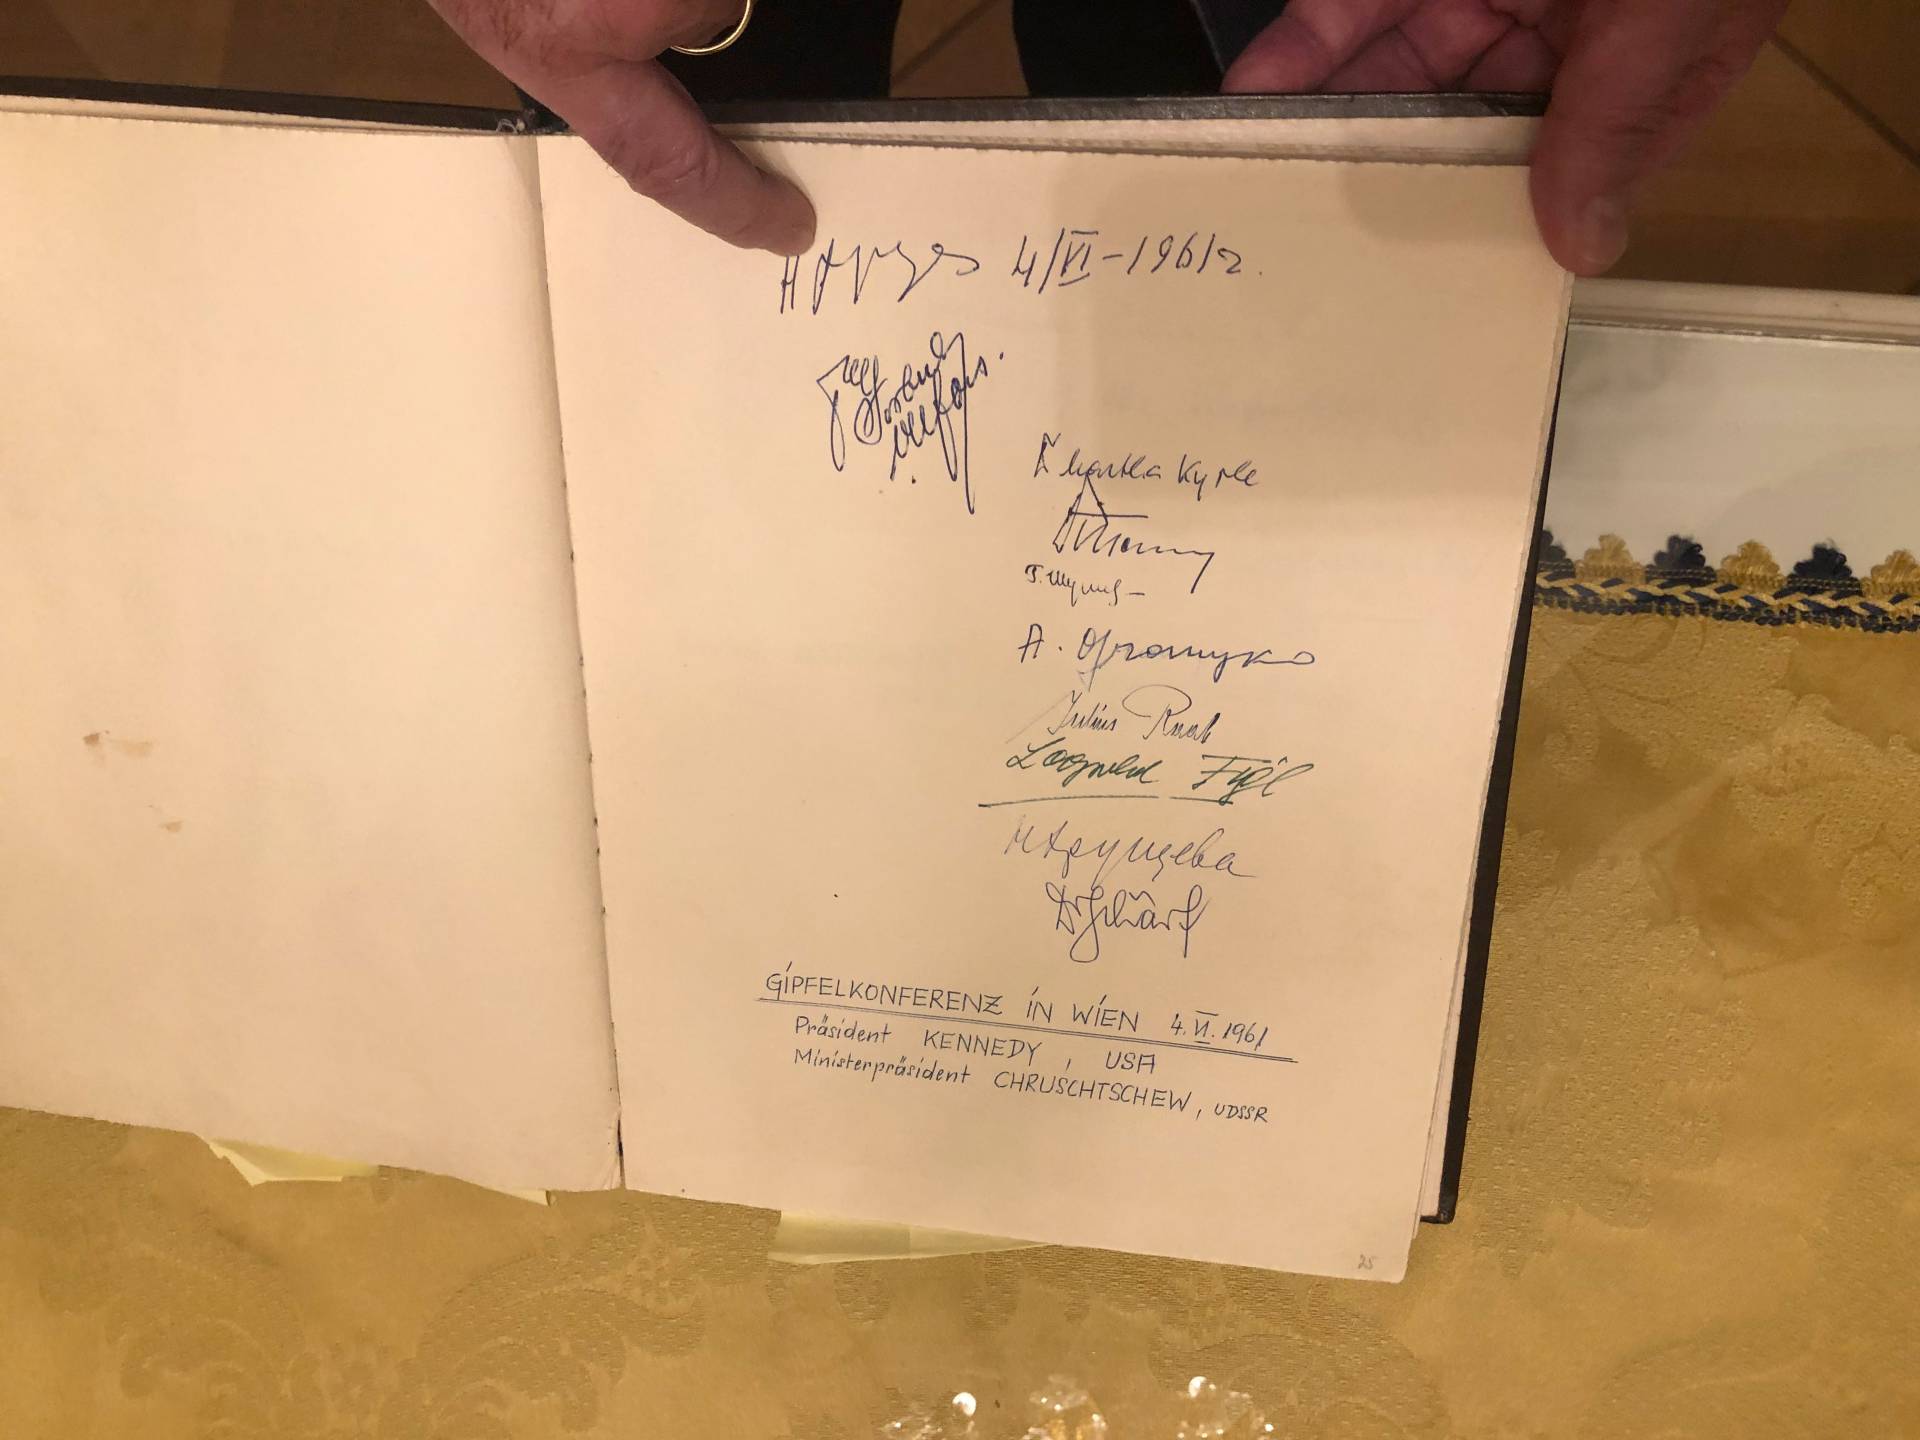 Н Хрущев 4/VI-1961 г.
Martha Kyrle
А. Громыко
Julius Raab
Leopold Figl
Н Хрущева
Dr Schärf
GIPFELKONFERENZ IN WIEN 4.VI.1961
Präsident KENNEDY, USA
Ministerpräsident CHRUSCHTSCHEW, UDSSR
25